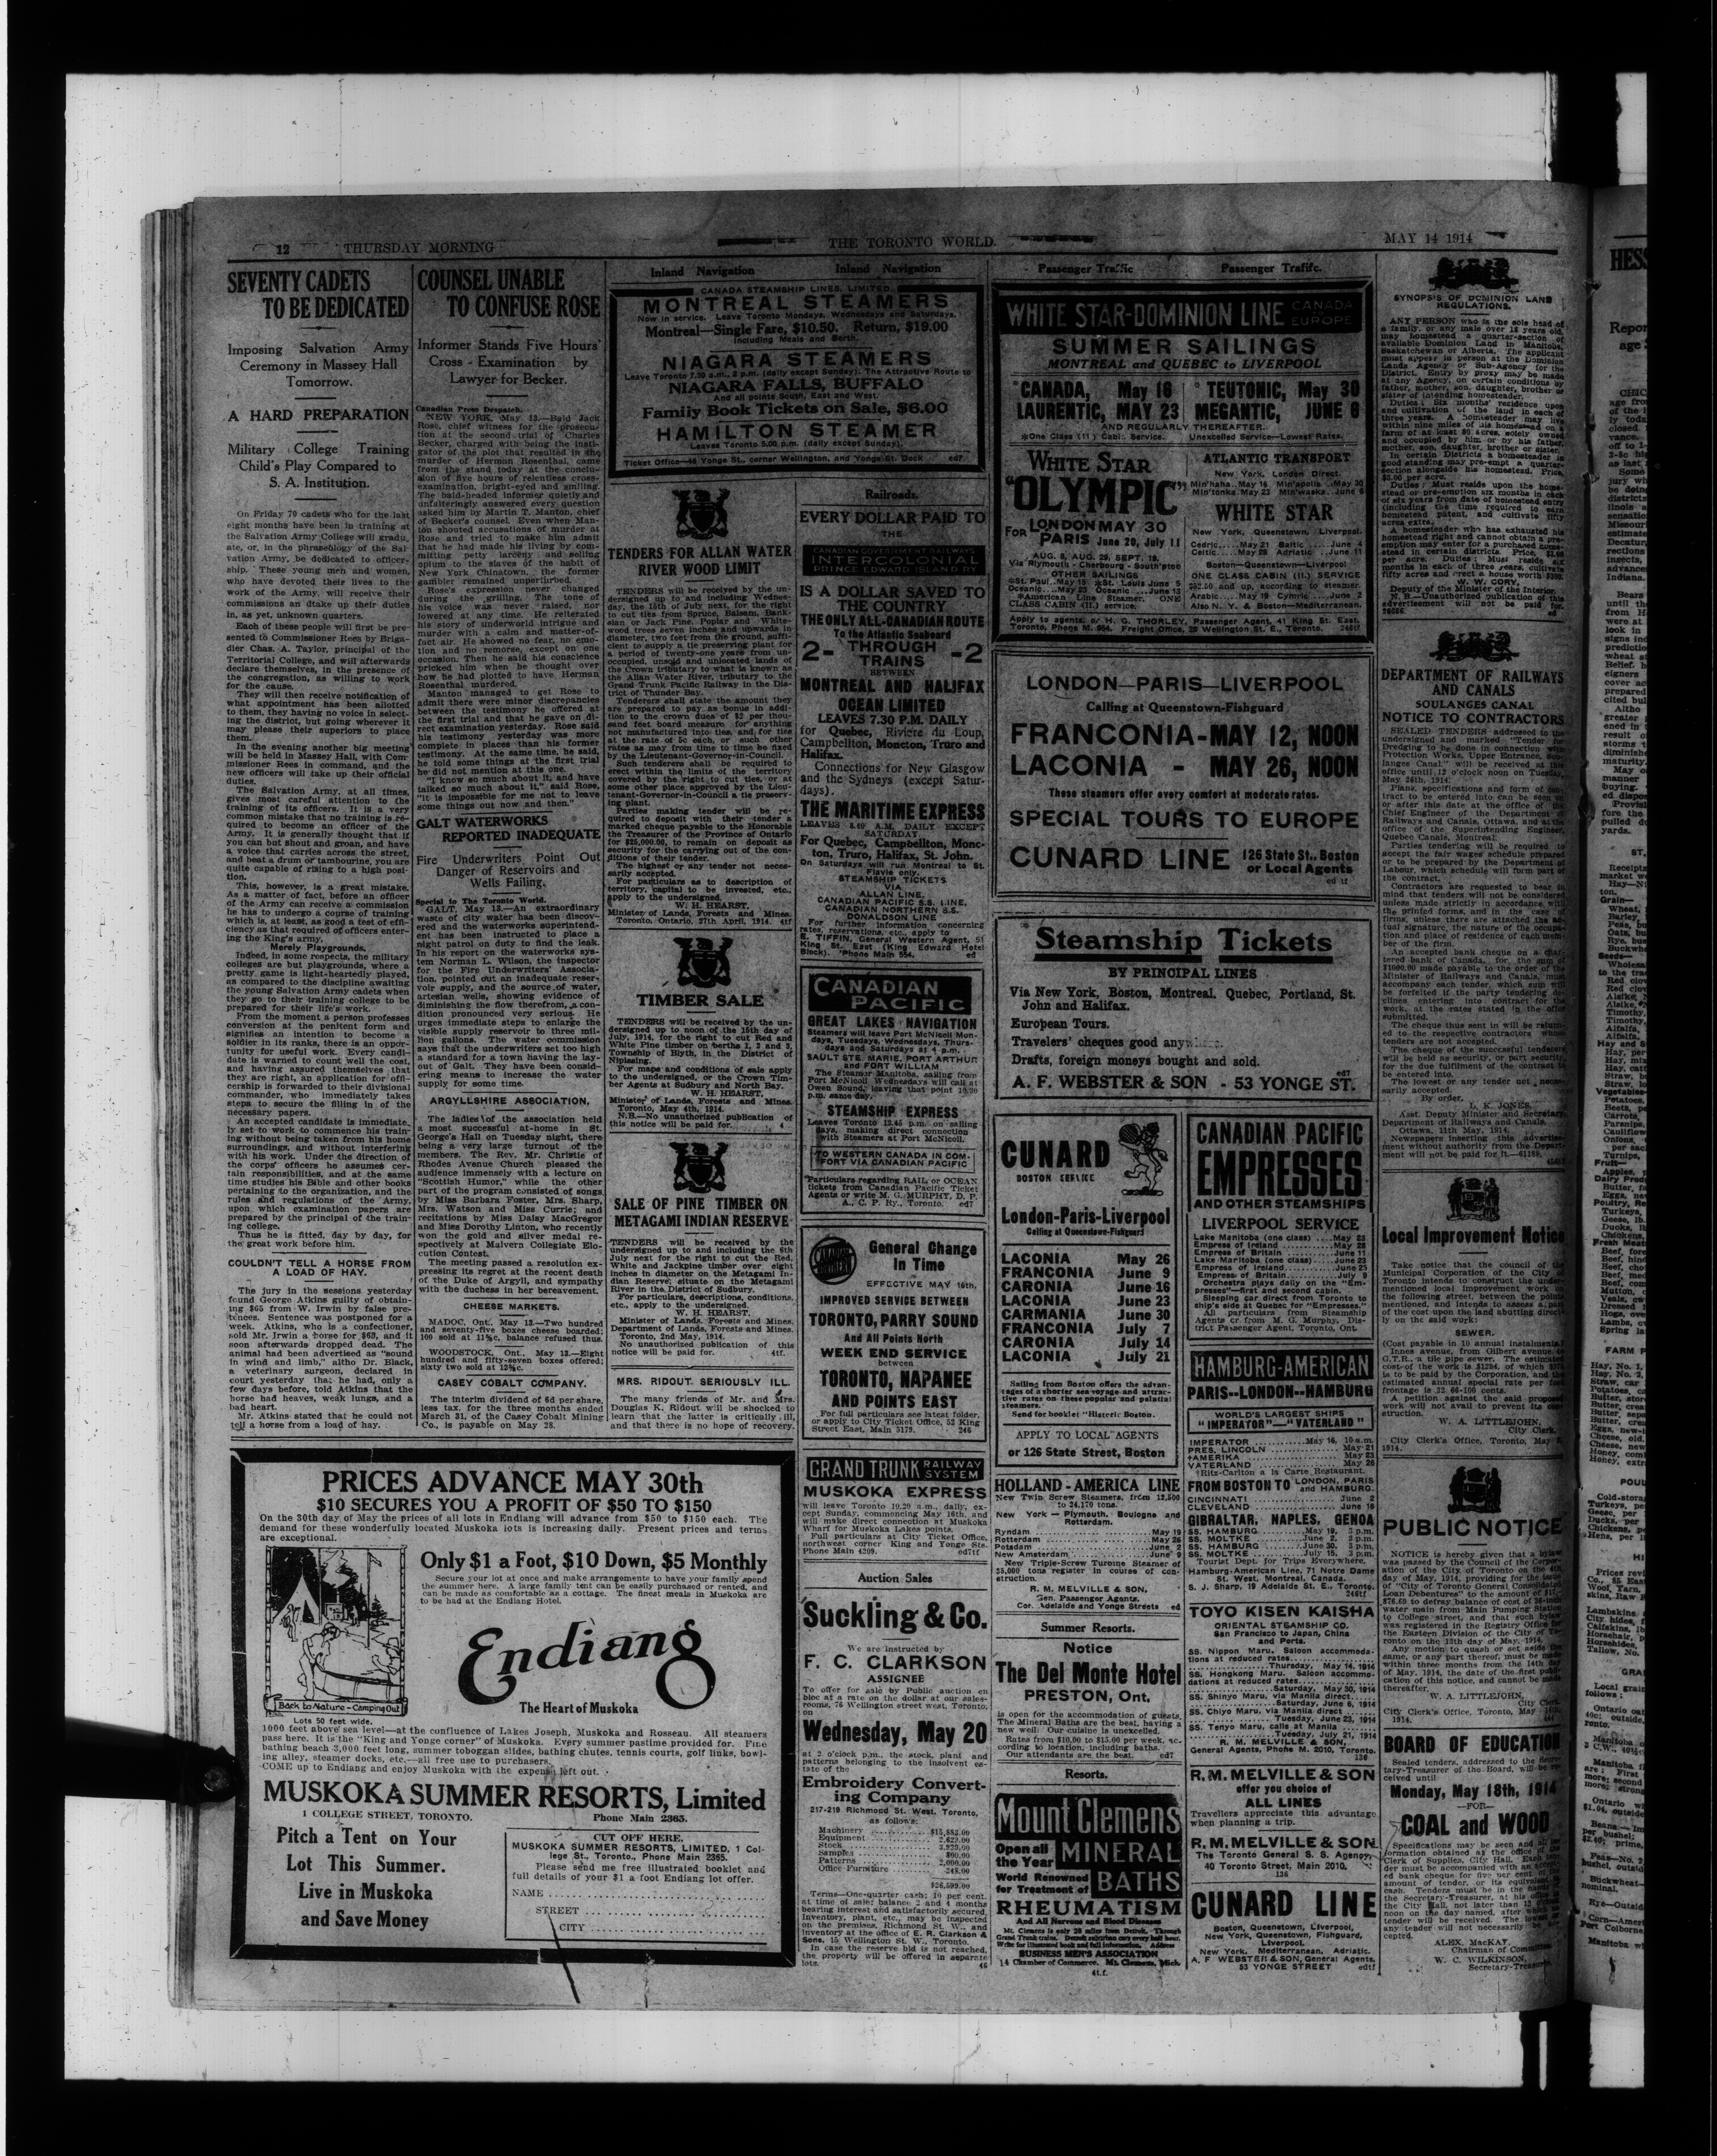 12 THURSDAY MORNING THE TORONTO WORLD. MAY 14 1914
SEVENTY CADETS
TO BE DEDICATED
Imposing Salvation Army
Ceremony in Massey Hall
Tomorrow.
A HARD PREPARATION
Military College Training
Child's Play Compared to
S. A. Institution.
On Friday 70 cadets who for the last
eight months have been in training at
the Salvation Army College will gradu-
ate, or, in the phraseology of the Sal-
vation Army, be dedicated to officer-
ship. These young men and women,
who have devoted their lives to the
work of the Army, will receive their
commissions an dtake up their duties
in, as yet, unknown quarters.
Each of these people will first be pre-
sented to Commissioner Rees by Briga-
dier Chas. A. Taylor, principal of the
Territorial College, and will afterwards
declare themselves, in the presence of
the congregation, as willing to work
for the cause.
They will then receive notification of
what appointment has been allotted
to them, they having no voice in select-
ing the district, but going wherever it
may please their superiors to place
them.
In the evening another big meeting
will be held in Massey Hall, with Com-
missioner Rees in command, and the
new officers will take up their official
duties.
The Salvation Army, at all times,
gives most careful attention to the
training of its officers. It is a very
common mistake that no training is re-
quired to become an officer of the
Army. It is generally thought that if
you can but shout and groan, and have
a voice that carries across the street,
and beat a drum or tambourine, you are
quite capable of rising to a high posi-
tion.
This, however, is a great mistake.
As a matter of fact, before an officer
of the Army can receive a commission
he has to undergo a course of training
which is, at least, as good a test of effi-
ciency as that required of officers enter-
ing the King's army.
Merely Playgrounds.
Indeed, in some respects, the military
colleges are but playgrounds, where a
pretty game is light-heartedly played,
as compared to the discipline awaiting
the young Salvation Army cadets when
they go to their training college to be
prepared for their life's work.
From the moment a person professes
conversion at the penitent form and
signifies an intention to become a
soldier in its ranks, there is an oppor-
tunity for useful work. Every candi-
date is warned to count well the cost,
and having assured themselves that
they are right, an application for offi-
cership is forwarded to their divisional
commander, who immediately takes
steps to secure the filling in of the
necessary papers.
An accepted candidate is immediate-
ly set to work to commence his train-
ing without being taken from his home
surroundings, and without interfering
with his work. Under the direction of
the corps' officers he assumes cer-
tain responsibilities, and at the same
time studies his Bible and other books
pertaining to the organization, and the
rules and regulations of the Army,
upon which examination papers are
prepared by the principal of the train-
ing college.
Thus he is fitted, day by day, for
the great work before him.
COULDN'T TELL A HORSE FROM
A LOAD OF HAY.
The jury in the sessions yesterday
found George Atkins guilty of obtain-
ing $65 from W. Irwin by false pre-
tences. Sentence was postponed for a
week. Atkins, who is a confectioner,
sold Mr. Irwin a horse for $65, and it
soon afterwards dropped dead. The
animal had been advertised as "sound
in wind and limb," altho Dr. Black,
a veterinary surgeon, declared in
court yesterday that he had, only a
few days before, told Atkins that the
horse had heaves, weak lungs, and a
bad heart.
Mr. Atkins stated that he could not
tell a horse from a load of hay.
COUNSEL UNABLE
TO CONFUSE ROSE
Informer Stands Five Hours'
Cross - Examination by
Lawyer for Becker.
Canadian Press Despatch.
NEW YORK, May 13.—Bald Jack
Rose, chief witness for the prosecu-
tion at the second trial of Charles
Becker, charged with being the insti-
gator of the plot that resulted in the
murder of Herman Rosenthal, came
from the stand today at the conclu-
sion of five hours of relentless cross-
examination, bright-eyed and smiling.
The bald-headed informer quietly and
unfalteringly answered every question
asked him by Martin T. Manton, chief
of Becker's counsel. Even when Man-
ton shouted accusations of murder at
Rose and tried to make him admit
that he had made his living by com-
mitting petty larceny and selling
opium to the slaves of the habit of
New York Chinatown, the former
gambler remained unperturbed.
Rose's expression never changed
during the grilling. The tone of
his voice was never raised, nor
lowered at any time. He reiterated
his story of underworld intrigue and
murder with a calm and matter-of-
fact air. He showed no fear, no emo-
tion and no remorse, except on one
occasion. Then he said his conscience
pricked him when he thought over
how he had plotted to have Herman
Rosenthal murdered.
Manton managed to get Rose to
admit there were minor discrepancies
between the testimony he offered at
the first trial and that he gave on di-
rect examination yesterday. Rose said
his testimony yesterday was more
complete in places than his former
testimony. At the same time, he said,
he told some things at the first trial
he did not mention at this one.
"I know so much about it, and have
talked so much about it," said Rose,
"it is impossible for me not to leave
some things out now and then."
GALT WATERWORKS
REPORTED INADEQUATE
Fire Underwriters Point Out
Danger of Reservoirs and
Wells Failing.
Special to The Toronto World.
GALT, May 13.—An extraordinary
waste of city water has been discov-
ered and the waterworks superintend-
ent has been instructed to place a
night patrol on duty to find the leak.
In his report on the waterworks sys-
tem Norman L. Wilson, the inspector
for the Fire Underwriters' Associa-
tion, pointed out an inadequate reser-
voir supply, and the source of water,
artesian wells, showing evidence of
diminishing the flow therefrom, a con-
dition pronounced very serious. He
urges immediate steps to enlarge the
visible supply reservoir to three mil-
lion gallons. The water commission
says that the underwriters set too high
a standard for a town having the lay-
out of Galt. They have been consid-
ering means to increase the water
supply for some time.
ARGYLLSHIRE ASSOCIATION.
The ladies of the association held
a most successful at-home in St.
George's Hall on Tuesday night, there
being a very large turnout of the
members. The Rev. Mr. Christie of
Rhodes Avenue Church pleased the
audience immensely with a lecture on
"Scottish Humor," while the other
part of the program consisted of songs
by Miss Barbara Foster, Mrs. Sharp,
Mrs. Watson and Miss Currie; and
recitations by Miss Daisy MacGregor
and Miss Dorothy Linton, who recently
won the gold and silver medal re-
spectively at Malvern Collegiate Elo-
cution Contest.
The meeting passed a resolution ex-
pressing its regret at the recent death
of the Duke of Argyll, and sympathy
with the duchess in her bereavement.
CHEESE MARKETS.
MADOC, Ont., May 13.—Two hundred
and seventy-five boxes cheese boarded;
100 sold at 11⅞c, balance refused thus.
WOODSTOCK, Ont., May 13.—Eight
hundred and fifty-seven boxes offered;
sixty two sold at 12⅜c.
CASEY COBALT COMPANY.
The interim dividend of 6d per share,
less tax, for the three months ended
March 31, of the Casey Cobalt Mining
Co., is payable on May 28.
Inland Navigation Inland Navigation
CANADA STEAMSHIP LINES, LIMITED.
MONTREAL STEAMERS
Now in service. Leave Toronto Mondays, Wednesdays and Saturdays.
Montreal—Single Fare, $10.50. Return, $19.00
Including Meals and Berth.
NIAGARA STEAMERS
Leave Toronto 7.30 a.m., 2 p.m. (daily except Sunday). The Attractive Route to
NIAGARA FALLS, BUFFALO
And all points South, East and West.
Family Book Tickets on Sale, $6.00
HAMILTON STEAMER
Leaves Toronto 5.00 p.m. (daily except Sunday).
Ticket Office—46 Yonge St., corner Wellington, and Yonge St. Dock ed7
TENDERS FOR ALLAN WATER
RIVER WOOD LIMIT
TENDERS will be received by the un-
dersigned up to and including Wednes-
day, the 15th of July next, for the right
to cut ties from Spruce, Balsam, Bank-
sian or Jack Pine, Poplar and White-
wood trees seven inches and upwards in
diameter, two feet from the ground, suffi-
cient to supply a tie preserving plant for
a period of twenty-one years from un-
occupied, unsold and unlocated lands of
the Crown tributary to what is known as
the Allan Water River, tributary to the
Grand Trunk Pacific Railway in the Dis-
trict of Thunder Bay.
Tenderers shall state the amount they
are prepared to pay as bonus in addi-
tion to the crown dues of $2 per thou-
sand feet board measure for anything
not manufactured into ties, and for ties
at the rate of 5c each, or such other
rates as may from time to time be fixed
by the Lieutenant-Governor-in-Council.
Such tenderers shall be required to
erect within the limits of the territory
covered by the right to cut ties, or at
some other place approved by the Lieu-
tenant-Governor-in-Council a tie preserv-
ing plant.
Parties making tender will be re-
quired to deposit with their tender a
marked cheque payable to the Honorable
the Treasurer of the Province of Ontario
for $25,000.00, to remain on deposit as
security for the carrying out of the con-
ditions of their tender.
The highest or any tender not neces-
sarily accepted.
For particulars as to description of
territory, capital to be invested, etc.,
apply to the undersigned.
W. H. HEARST,
Minister of Lands, Forests and Mines.
Toronto, Ontario, 27th April, 1914. 4tf
TIMBER SALE
TENDERS will be received by the un-
dersigned up to noon of the 15th day of
July, 1914, for the right to cut Red and
White Pine timber on berths 1, 2 and 3,
Township of Blyth, in the District of
Nipissing.
For maps and conditions of sale apply
to the undersigned, or the Crown Tim-
ber Agents at Sudbury and North Bay.
W. H. HEARST,
Minister of Lands, Forests and Mines.
Toronto, May 4th, 1914.
N.B.—No unauthorized publication of
this notice will be paid for.
SALE OF PINE TIMBER ON
METAGAMI INDIAN RESERVE
TENDERS will be received by the
undersigned up to and including the 6th
July next for the right to cut the Red,
White and Jackpine timber over eight
inches in diameter on the Metagami In-
dian Reserve, situate on the Metagami
River in the District of Sudbury.
For particulars, descriptions, conditions,
etc., apply to the undersigned.
W. H. HEARST,
Minister of Lands, Forests and Mines.
Department of Lands, Forests and Mines.
Toronto, 2nd May, 1914.
No unauthorized publication of this
notice will be paid for. 4tf.
MRS. RIDOUT SERIOUSLY ILL.
The many friends of Mr. and Mrs.
Douglas K. Ridout will be shocked to
learn that the latter is critically ill,
and that there is no hope of recovery.
Railroads.
EVERY DOLLAR PAID TO
THE
CANADIAN GOVERNMENT RAILWAYS
INTERCOLONIAL
PRINCE EDWARD ISLAND RY
IS A DOLLAR SAVED TO
THE COUNTRY
THE ONLY ALL-CANADIAN ROUTE
To the Atlantic Seaboard
2- THROUGH
TRAINS -2
BETWEEN
MONTREAL AND HALIFAX
OCEAN LIMITED
LEAVES 7.30 P.M. DAILY
for Quebec, Riviere du Loup,
Campbellton, Moncton, Truro and
Halifax.
Connections for New Glasgow
and the Sydneys (except Satur-
days).
THE MARITIME EXPRESS
LEAVES 8.40 A.M. DAILY EXCEPT
SATURDAY
For Quebec, Campbellton, Monc-
ton, Truro, Halifax, St. John.
On Saturdays will run Montreal to St.
Flavie only.
STEAMSHIP TICKETS
VIA
ALLAN LINE,
CANADIAN PACIFIC S.S. LINE,
CANADIAN NORTHERN S.S.
DONALDSON LINE
For further information concerning
rates, reservations, etc., apply to
E. TIFFIN, General Western Agent, 51
King St. East (King Edward Hotel
Block). 'Phone Main 554. ed
CANADIAN
PACIFIC
GREAT LAKES NAVIGATION
Steamers will leave Port McNicoll Mon-
days, Tuesdays, Wednesdays, Thurs-
days and Saturdays at 4 p.m.
SAULT STE. MARIE, PORT ARTHUR
and FORT WILLIAM
The Steamer Manitoba, sailing from
Port McNicoll Wednesdays will call at
Owen Sound, leaving that point 10.30
p.m. same day.
STEAMSHIP EXPRESS
Leaves Toronto 12.45 p.m. on sailing
days, making direct connection
with Steamers at Port McNicoll.
TO WESTERN CANADA IN COM-
FORT VIA CANADIAN PACIFIC
Particulars regarding RAIL or OCEAN
tickets from Canadian Pacific Ticket
Agents or write M. G. MURPHY, D. P.
A., C. P. Ry., Toronto. ed7
General Change
in Time
EFFECTIVE MAY 16th,
IMPROVED SERVICE BETWEEN
TORONTO, PARRY SOUND
And All Points North
WEEK END SERVICE
between
TORONTO, NAPANEE
AND POINTS EAST
For full particulars see latest folder,
or apply to City Ticket Office, 52 King
Street East, Main 5179. 246
GRAND TRUNK RAILWAY
SYSTEM
MUSKOKA EXPRESS
will leave Toronto 10.20 a.m., daily, ex-
cept Sunday, commencing May 16th, and
will make direct connection at Muskoka
Wharf for Muskoka Lakes points.
Full particulars at City Ticket Office,
northwest corner King and Yonge Sts.
Phone Main 4209. ed7tf
Auction Sales
Suckling & Co.
We are instructed by
F. C. CLARKSON
ASSIGNEE
To offer for sale by Public auction en
bloc at a rate on the dollar at our sales-
rooms, 76 Wellington street west, Toronto,
on
Wednesday, May 20
at 2 o'clock p.m., the stock, plant and
patterns belonging to the insolvent es-
tate of the
Embroidery Convert-
ing Company
217-219 Richmond St. West, Toronto,
as follows:
Machinery
Equipment
Stock
Samples
Patterns 2,000.00
Office Furniture
$26,599.00
Terms—One-quarter cash; 10 per cent.
at time of sale; balance 2 and 4 months
bearing interest and satisfactorily secured.
Inventory, plant, etc., may be inspected
on the premises, Richmond St. W., and
inventory at the office of E. R. Clarkson &
Sons, 15 Wellington St. W., Toronto.
In case the reserve bid is not reached,
the property will be offered in separate
lots. 46
Passenger Traffic Passenger Traffic.
WHITE STAR-DOMINION LINE CANADA
TO
EUROPE
SUMMER SAILINGS
MONTREAL and QUEBEC to LIVERPOOL
*CANADA, May 16 * TEUTONIC, May 30
LAURENTIC, MAY 23 MEGANTIC, JUNE 6
AND REGULARLY THEREAFTER.
*One Class (11) Cabin Service. Unexcelled Service—Lowest Rates.
WHITE STAR
"OLYMPIC"
FOR LONDON
PARIS MAY 30
June 20, July 11
AUG. 8, AUG. 29, SEPT. 19.
Via Plymouth - Cherbourg - South'pton
OTHER SAILINGS
*St. Paul..May 15 *St. Louis June 5
Oceanic..May 23 Oceanic ..June 13
*American Line Steamer. ONE
CLASS CABIN (II.) service.
ATLANTIC TRANSPORT
New York, London Direct.
Min'haha..May 16 Min'apolis ..May 30
Min'tonka May 23 Min'waska. June 6
WHITE STAR
New York, Queenstown, Liverpool.
Cedric....May 21 Baltic .....June 4
Celtic....May 28 Adriatic ..June 11
Boston—Queenstown—Liverpool
ONE CLASS CABIN (II.) SERVICE
$52.50 and up, according to steamer.
Arabic....May 19 Cymric ...June 2
Also N. Y. & Boston—Mediterranean.
Apply to agents, or H. G. THORLEY, Passenger Agent, 41 King St. East,
Toronto, Phone M. 954. Freight Office, 28 Wellington St. E., Toronto. 246tf
LONDON—PARIS—LIVERPOOL
Calling at Queenstown-Fishguard
FRANCONIA-MAY 12, NOON
LACONIA - MAY 26, NOON
These steamers offer every comfort at moderate rates.
SPECIAL TOURS TO EUROPE
CUNARD LINE 126 State St., Boston
or Local Agents
ed tf
Steamship Tickets
BY PRINCIPAL LINES
Via New York, Boston, Montreal, Quebec, Portland, St.
John and Halifax.
European Tours.
Travelers' cheques good anywhere.
Drafts, foreign moneys bought and sold.
ed7
A. F. WEBSTER & SON - 53 YONGE ST.
CUNARD
BOSTON SERVICE
London-Paris-Liverpool
Calling at Queenstown-Fishguard
LACONIA May 26
FRANCONIA June 9
CARONIA June 16
LACONIA June 23
CARMANIA June 30
FRANCONIA July 7
CARONIA July 14
LACONIA July 21
Sailing from Boston offers the advan-
tages of a shorter sea voyage and attrac-
tive rates on these popular and palatial
steamers.
Send for booklet "Historic Boston.
APPLY TO LOCAL AGENTS
or 126 State Street, Boston
HOLLAND - AMERICA LINE
New Twin Screw Steamers, from 12,500
to 24,170 tons.
New York — Plymouth, Boulogne and
Rotterdam.
Ryndam May 19
Rotterdam May 26
Potsdam June 2
New Amsterdam June 9
New Triple-Screw Turbine Steamer of
35,000 tons register in course of con-
struction.
R. M. MELVILLE & SON,
Gen. Passenger Agents,
Cor. Adelaide and Yonge Streets ed
Summer Resorts.
Notice
The Del Monte Hotel
PRESTON, Ont.
is open for the accommodation of guests.
The Mineral Baths are the best, having a
new well. Our cuisine is unexcelled.
Rates from $10.00 to $15.00 per week, ac-
cording to location, including baths.
Our attendants are the best. ed7
Resorts.
Mount Clemens
Open all
the Year MINERAL
World Renowned
for Treatment of BATHS
RHEUMATISM
And All Nervous and Blood Diseases
Mt. Clemens is only 20 miles from Detroit. Through
Grand Trunk trains. Detroit suburban cars every half hour.
Write for illustrated book and full information. Address
BUSINESS MEN'S ASSOCIATION
14 Chamber of Commerce. Mt. Clemens, Mich.
4t.f.
CANADIAN PACIFIC
EMPRESSES
AND OTHER STEAMSHIPS
LIVERPOOL SERVICE
Lake Manitoba (one class) ....May 23
Empress of Ireland ...........May 28
Empress of Britain ..........June 11
Lake Manitoba (one class)....June 23
Empress of Ireland..........June 25
Empress of Britain............July 9
Orchestra plays daily on the "Em-
presses"—first and second cabin.
Sleeping car direct from Toronto to
ship's side at Quebec for "Empresses."
All particulars from Steamship
Agents or from M. G. Murphy, Dis-
trict Passenger Agent, Toronto, Ont.
HAMBURG-AMERICAN
PARIS--LONDON--HAMBURG
WORLD'S LARGEST SHIPS
"IMPERATOR"—"VATERLAND"
IMPERATOR ..........May 16, 10 a.m.
PRES. LINCOLN ...............May 21
†AMERIKA ....................May 23
VATERLAND ...................May 26
†Ritz-Carlton a la Carte Restaurant.
FROM BOSTON TO LONDON, PARIS
and HAMBURG.
CINCINNATI ..................June 2
CLEVELAND ...................June 16
GIBRALTAR, NAPLES, GENOA
SS. HAMBURG ........May 19, 3 p.m.
SS. MOLTKE .........June 2, 3 p.m.
SS. HAMBURG ........June 30, 3 p.m.
SS. MOLTKE .........July 15, 3 p.m.
Tourist Dept. for Trips Everywhere.
Hamburg-American Line, 71 Notre Dame
St. West, Montreal, Canada.
S. J. Sharp, 19 Adelaide St. E., Toronto.
246tf
TOYO KISEN KAISHA
ORIENTAL STEAMSHIP CO.
San Francisco to Japan, China
and Ports.
SS. Nippon Maru, Saloon accommoda-
tions at reduced rates
Thursday, May 14, 1914
SS. Hongkong Maru. Saloon accommo-
dations at reduced rates
Saturday, May 30, 1914
SS. Shinyo Maru, via Manila direct
Saturday, June 6, 1914
SS. Chiyo Maru, via Manila direct
Tuesday, June 23, 1914
SS. Tenyo Maru, calls at Manila
Tuesday, July 21, 1914
R. M. MELVILLE & SON,
General Agents, Phone M. 2010, Toronto.
136
R. M. MELVILLE & SON
offer you choice of
ALL LINES
Travellers appreciate this advantage
when planning a trip.
R. M. MELVILLE & SON
The Toronto General S. S. Agency,
40 Toronto Street, Main 2010.
136
CUNARD LINE
Boston, Queenstown, Liverpool,
New York, Queenstown, Fishguard,
Liverpool.
New York, Mediterranean, Adriatic.
A. F. WEBSTER & SON, General Agents,
53 YONGE STREET edtf
SYNOPSIS OF DOMINION LAND
REGULATIONS.
ANY PERSON who is the sole head of
a family, or any male over 18 years old,
may homestead a quarter-section of
available Dominion Land in Manitoba,
Saskatchewan or Alberta. The applicant
must appear in person at the Dominion
Lands Agency or Sub-Agency for the
District. Entry by proxy may be made
at any Agency, on certain conditions by
father, mother, son, daughter, brother or
sister of intending homesteader.
Duties: Six months' residence upon
and cultivation of the land in each of
three years. A homesteader may live
within nine miles of his homestead on a
farm of at least 80 acres, solely owned
and occupied by him or by his father,
mother, son, daughter, brother or sister.
In certain Districts a homesteader in
good standing may pre-empt a quarter-
section alongside his homestead. Price,
$3.00 per acre.
Duties: Must reside upon the home-
stead or pre-emption six months in each
of six years from date of homestead entry
(including the time required to earn
homestead patent, and cultivate fifty
acres extra.
A homesteader who has exhausted his
homestead right and cannot obtain a pre-
emption may enter for a purchased home-
stead in certain districts. Price, $3.00
per acre. Duties: Must reside six
months in each of three years, cultivate
fifty acres and erect a house worth $300.
W. W. CORY,
Deputy of the Minister of the Interior.
N. B.—Unauthorized publication of this
advertisement will not be paid for.
ed
DEPARTMENT OF RAILWAYS
AND CANALS
SOULANGES CANAL
NOTICE TO CONTRACTORS
SEALED TENDERS addressed to the
undersigned and marked "Tender for
Dredging to be done in connection with
Protection Works, Upper Entrance, Sou-
langes Canal," will be received at this
office until 12 o'clock noon on Tuesday,
May 26th, 1914.
Plans, specifications and form of con-
tract to be entered into can be seen on
or after this date at the office of the
Chief Engineer of the Department of
Railways and Canals, Ottawa, and at the
office of the Superintending Engineer,
Quebec Canals, Montreal.
Parties tendering will be required to
accept the fair wages schedule prepared
or to be prepared by the Department of
Labour, which schedule will form part of
the contract.
Contractors are requested to bear in
mind that tenders will not be considered
unless made strictly in accordance with
the printed forms, and in the case of
firms, unless there are attached the ac-
tual signature, the nature of the occupa-
tion and place of residence of each mem-
ber of the firm.
An accepted bank cheque on a char-
tered bank of Canada, for the sum of
$1000.00 made payable to the order of the
Minister of Railways and Canals, must
accompany each tender, which sum will
be forfeited if the party tendering de-
clines entering into contract for the
work, at the rates stated in the offer
submitted.
The cheque thus sent in will be return-
ed to the respective contractors whose
tenders are not accepted.
The cheque of the successful tenderer
will be held as security, or part security,
for the due fulfilment of the contract to
be entered into.
The lowest or any tender not neces-
sarily accepted.
By order,
L. K. JONES,
Asst. Deputy Minister and Secretary.
Department of Railways and Canals,
Ottawa, 11th May, 1914.
Newspapers inserting this advertise-
ment without authority from the Depart-
ment will not be paid for it.—61189.
Local Improvement Notice
Take notice that the council of the
Municipal Corporation of the City of
Toronto intends to construct the under-
mentioned local improvement work on
the following street, between the points
mentioned, and intends to assess a part
of the cost upon the land abutting direct-
ly on the said work:
SEWER.
(Cost payable in 10 annual instalments)
Innes avenue, from Gilbert avenue to
G.T.R., a tile pipe sewer. The estimated
cost of the work is
is to be paid by the Corporation, and the
estimated annual special rate per foot
frontage is 32 66-100 cents.
A petition against the said proposed
work will not avail to prevent its con-
struction.
W. A. LITTLEJOHN,
City Clerk.
City Clerk's Office, Toronto, May
1914.
PUBLIC NOTICE
NOTICE is hereby given that a bylaw
was passed by the Council of the Corpor-
ation of the City of Toronto on the
day of May, 1914, providing for the issue
of "City of Toronto General Consolidated
Loan Debentures" to the amount of
to defray balance of cost of 36-inch
water main from Main Pumping Station
to College street, and that such bylaw
was registered in the Registry Office for
the Eastern Division of the City of To-
ronto on the 13th day of May, 1914.
Any motion to quash or set aside the
same, or any part thereof, must be made
within three months from the 14th day
of May, 1914, the date of the first publi-
cation of this notice, and cannot be made
thereafter.
W. A. LITTLEJOHN,
City Clerk.
City Clerk's Office, Toronto, May
1914.
BOARD OF EDUCATION
Sealed tenders, addressed to the Secre-
tary-Treasurer of the Board, will be re-
ceived until
Monday, May 18th, 1914
—FOR—
COAL and WOOD
Specifications may be seen and all in-
formation obtained at the office of the
Clerk of Supplies, City Hall. Each ten-
der must be accompanied with an accept-
ed bank cheque for five per cent. of the
amount of tender, or its equivalent in
cash. Tenders must be in the hands of
the Secretary-Treasurer, at his office in
the City Hall, not later than 12 o'clock
noon on the day named, after which no
tender will be received. The lowest or
any tender will not necessarily be ac-
cepted.
ALEX. MacKAY,
Chairman of Committee.
W. C. WILKINSON,
Secretary-Treasurer.
PRICES ADVANCE MAY 30th
$10 SECURES YOU A PROFIT OF $50 TO $150
On the 30th day of May the prices of all lots in Endiang will advance from $50 to $150 each. The
demand for these wonderfully located Muskoka lots is increasing daily. Present prices and terms
are exceptional.
Only $1 a Foot, $10 Down, $5 Monthly
Secure your lot at once and make arrangements to have your family spend
the summer here. A large family tent can be easily purchased or rented, and
can be made as comfortable as a cottage. The finest meals in Muskoka are
to be had at the Endiang Hotel.
Endiang
The Heart of Muskoka
Back to Nature - Camping Out
Lots 50 feet wide.
1000 feet above sea level—at the confluence of Lakes Joseph, Muskoka and Rosseau. All steamers
pass here. It is the "King and Yonge corner" of Muskoka. Every summer pastime provided for. Fine
bathing beach 3,000 feet long, summer toboggan slides, bathing chutes, tennis courts, golf links, bowl-
ing alley, steamer docks, etc.—all free use to purchasers.
COME up to Endiang and enjoy Muskoka with the expense left out.
MUSKOKA SUMMER RESORTS, Limited
1 COLLEGE STREET, TORONTO. Phone Main 2365.
Pitch a Tent on Your
Lot This Summer.
Live in Muskoka
and Save Money
CUT OFF HERE.
MUSKOKA SUMMER RESORTS, LIMITED, 1 Col-
lege St., Toronto., Phone Main 2365.
Please send me free illustrated booklet and
full details of your $1 a foot Endiang lot offer.
NAME
STREET
CITY